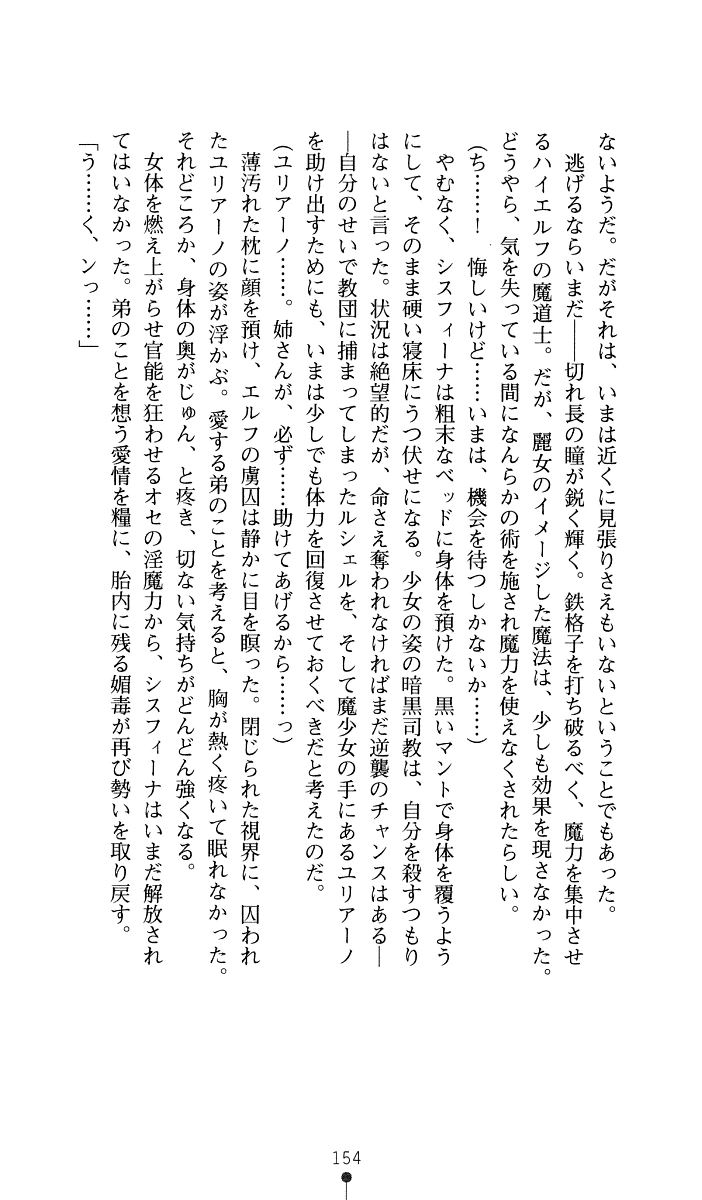 ないようだ。だがそれは、いまは近くに見張りさえもいないということでもあった。
　逃げるならいまだ――切れ長の瞳が鋭く輝く。鉄格子を打ち破るべく、魔力を集中させ
るハイエルフの魔道士。だが、麗女のイメージした魔法は、少しも効果を現さなかった。
どうやら、気を失っている間になんらかの術を施され魔力を使えなくされたらしい。
（ち……！　悔しいけど……いまは、機会を待つしかないか……）
　やむなく、シスフィーナは粗末なベッドに身体を預けた。黒いマントで身体を覆うよう
にして、そのまま硬い寝床にうつ伏せになる。少女の姿の暗黒司教は、自分を殺すつもり
はないと言った。状況は絶望的だが、命さえ奪われなければまだ逆襲のチャンスはある―
―自分のせいで教団に捕まってしまったルシェルを、そして魔少女の手にあるユリアーノ
を助け出すためにも、いまは少しでも体力を回復させておくべきだと考えたのだ。
（ユリアーノ……。姉さんが、必ず……助けてあげるから……っ）
　薄汚れた枕に顔を預け、エルフの虜囚は静かに目を瞑った。閉じられた視界に、囚われ
たユリアーノの姿が浮かぶ。愛する弟のことを考えると、胸が熱く疼いて眠れなかった。
それどころか、身体の奥がじゅん、と疼き、切ない気持ちがどんどん強くなる。
　女体を燃え上がらせ官能を狂わせるオセの淫魔力から、シスフィーナはいまだ解放され
てはいなかった。弟のことを想う愛情を糧に、胎内に残る媚毒が再び勢いを取り戻す。
「う……く、ンっ……」
154